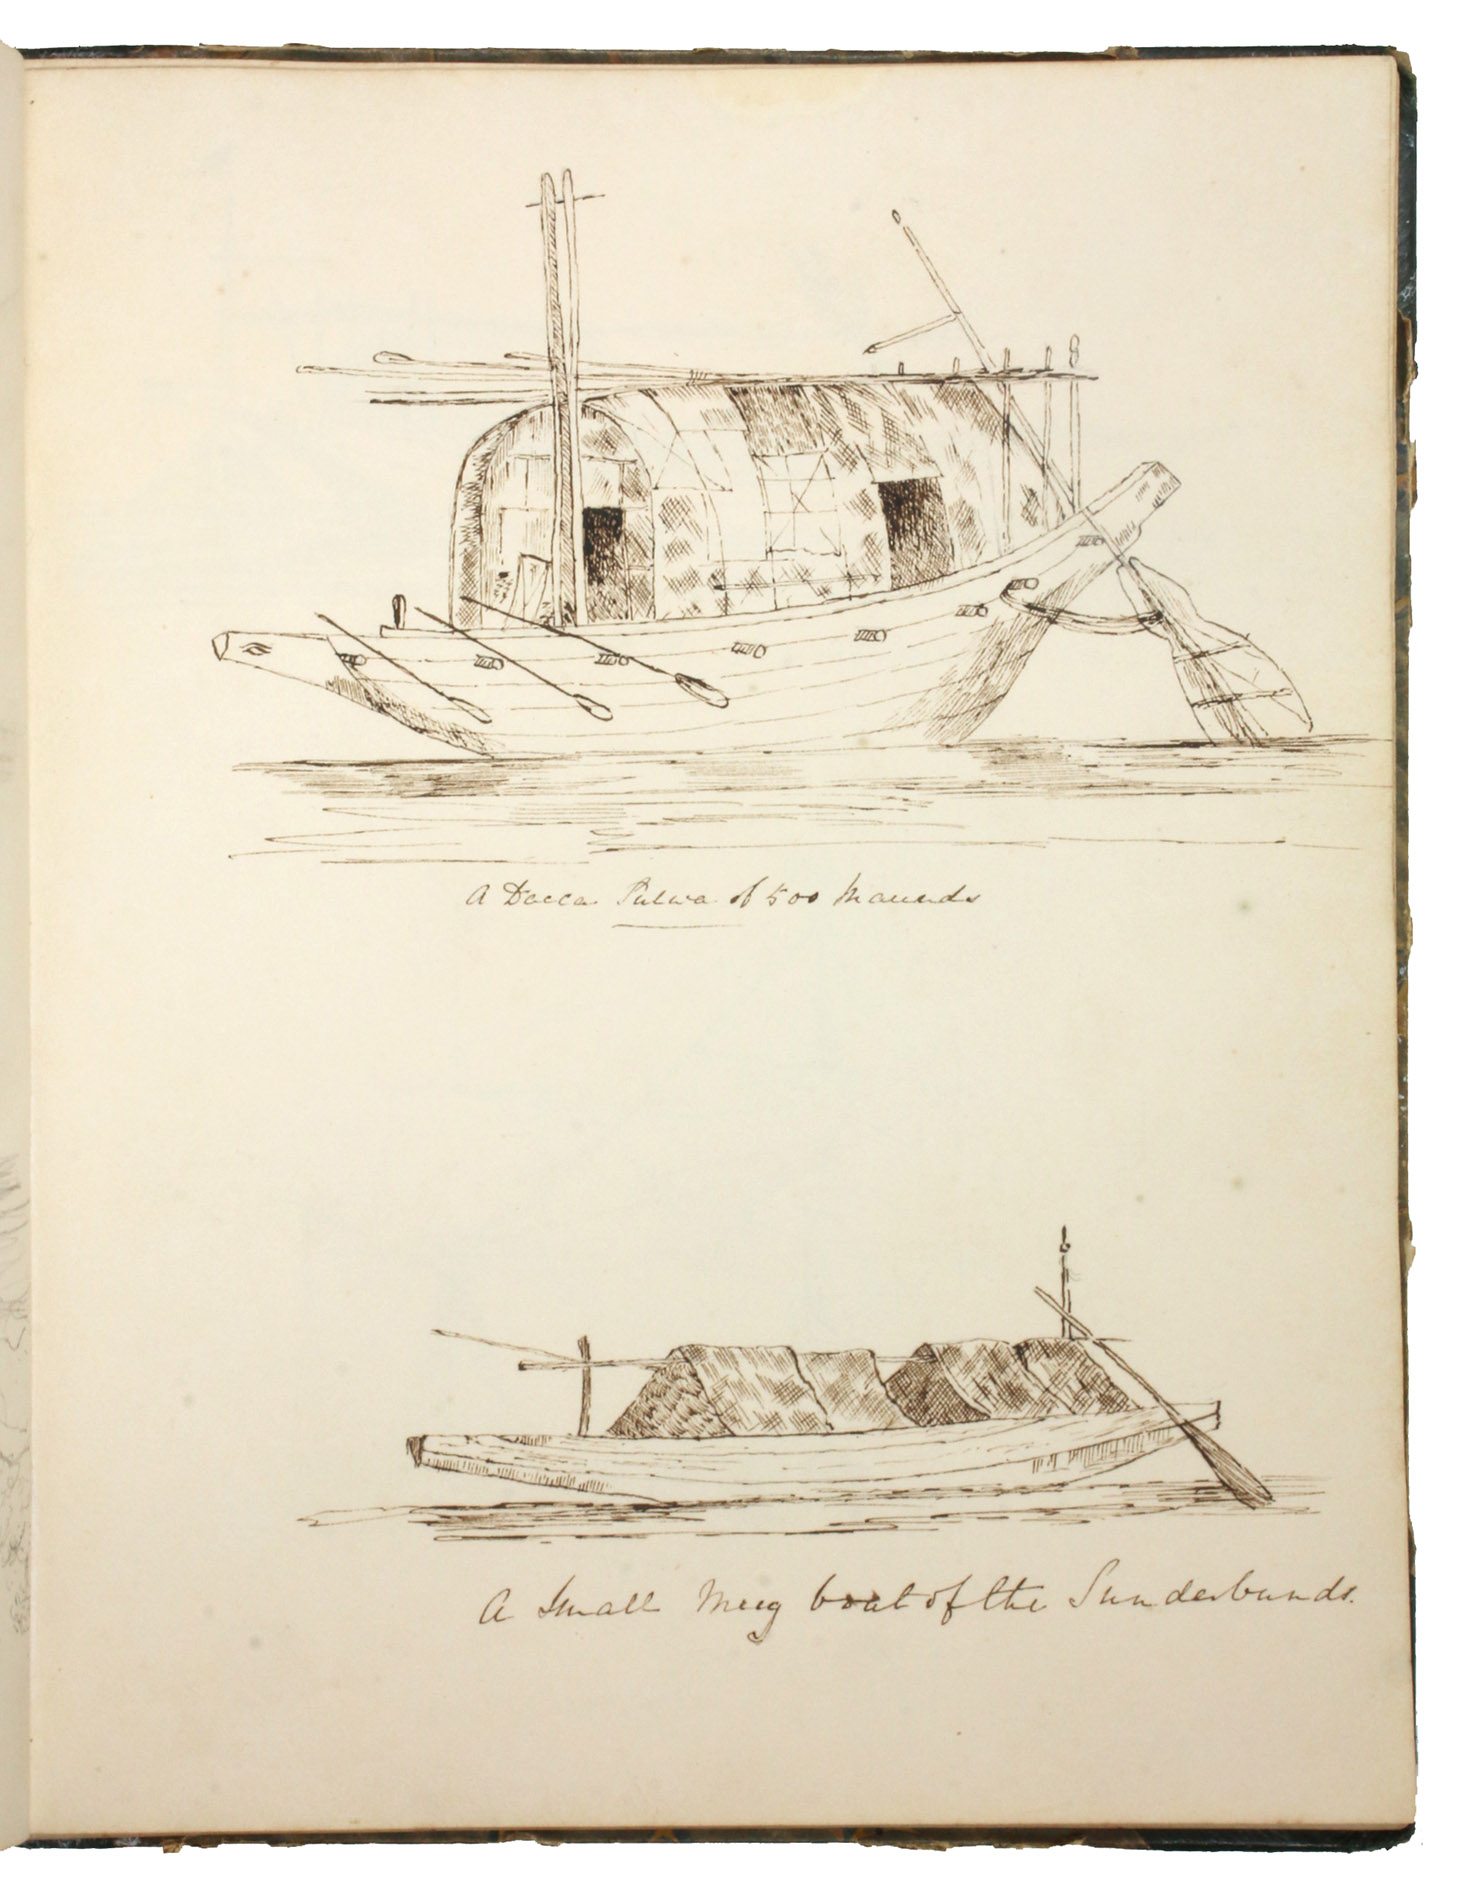 A Dacca Pulwa of 500 Maunds
A Small Mug boat of the Sunderbunds.